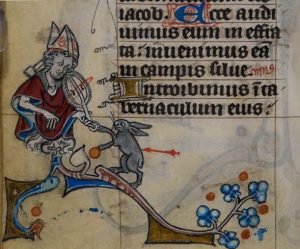 iacob. Ecce audi
uimus eum in effra
ta: inuenimus eā
in campis silue.
Introibimus ī ta
bernaculum eius: